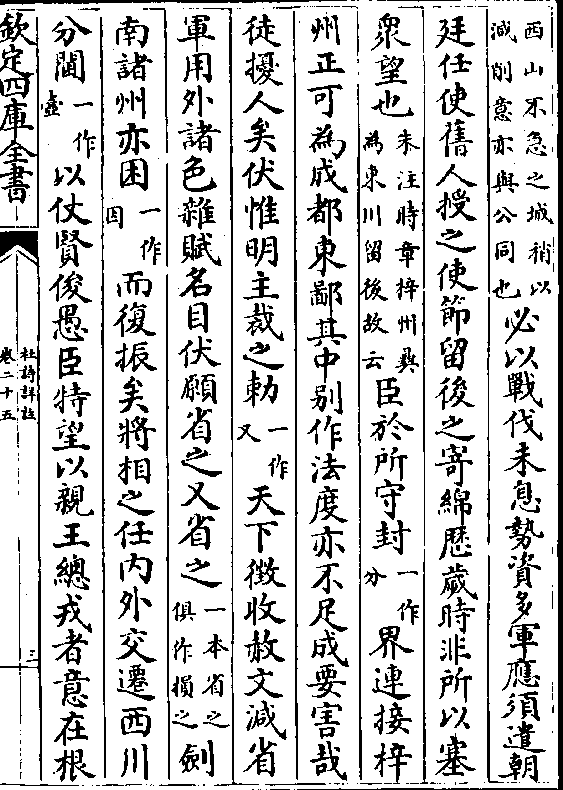 西山不急之城稍以
減削意亦與公同也
必以戰伐未息勢資多軍應須遣朝
廷任使舊人授之使節留後之寄綿歷歲時非所以塞
衆望也
朱注時章梓州彞
為東川留後故云
臣於所守封
一作
分
界連接梓
州正可為成都東鄙其中别作法度亦不足成要害哉
徒擾人矣伏惟明主裁之勅
一作
又
天下徵收赦文減省
軍用外諸色雜賦名目伏願省之又省之
一本省之
俱作損之
劍
南諸州亦困
一作
因
而復振矣將相之任内外交遷西川
分閫
一作
壼
以仗賢俊愚臣特望以親王總戎者意在根
欽定四庫全書
杜詩詳註
卷二十五
三